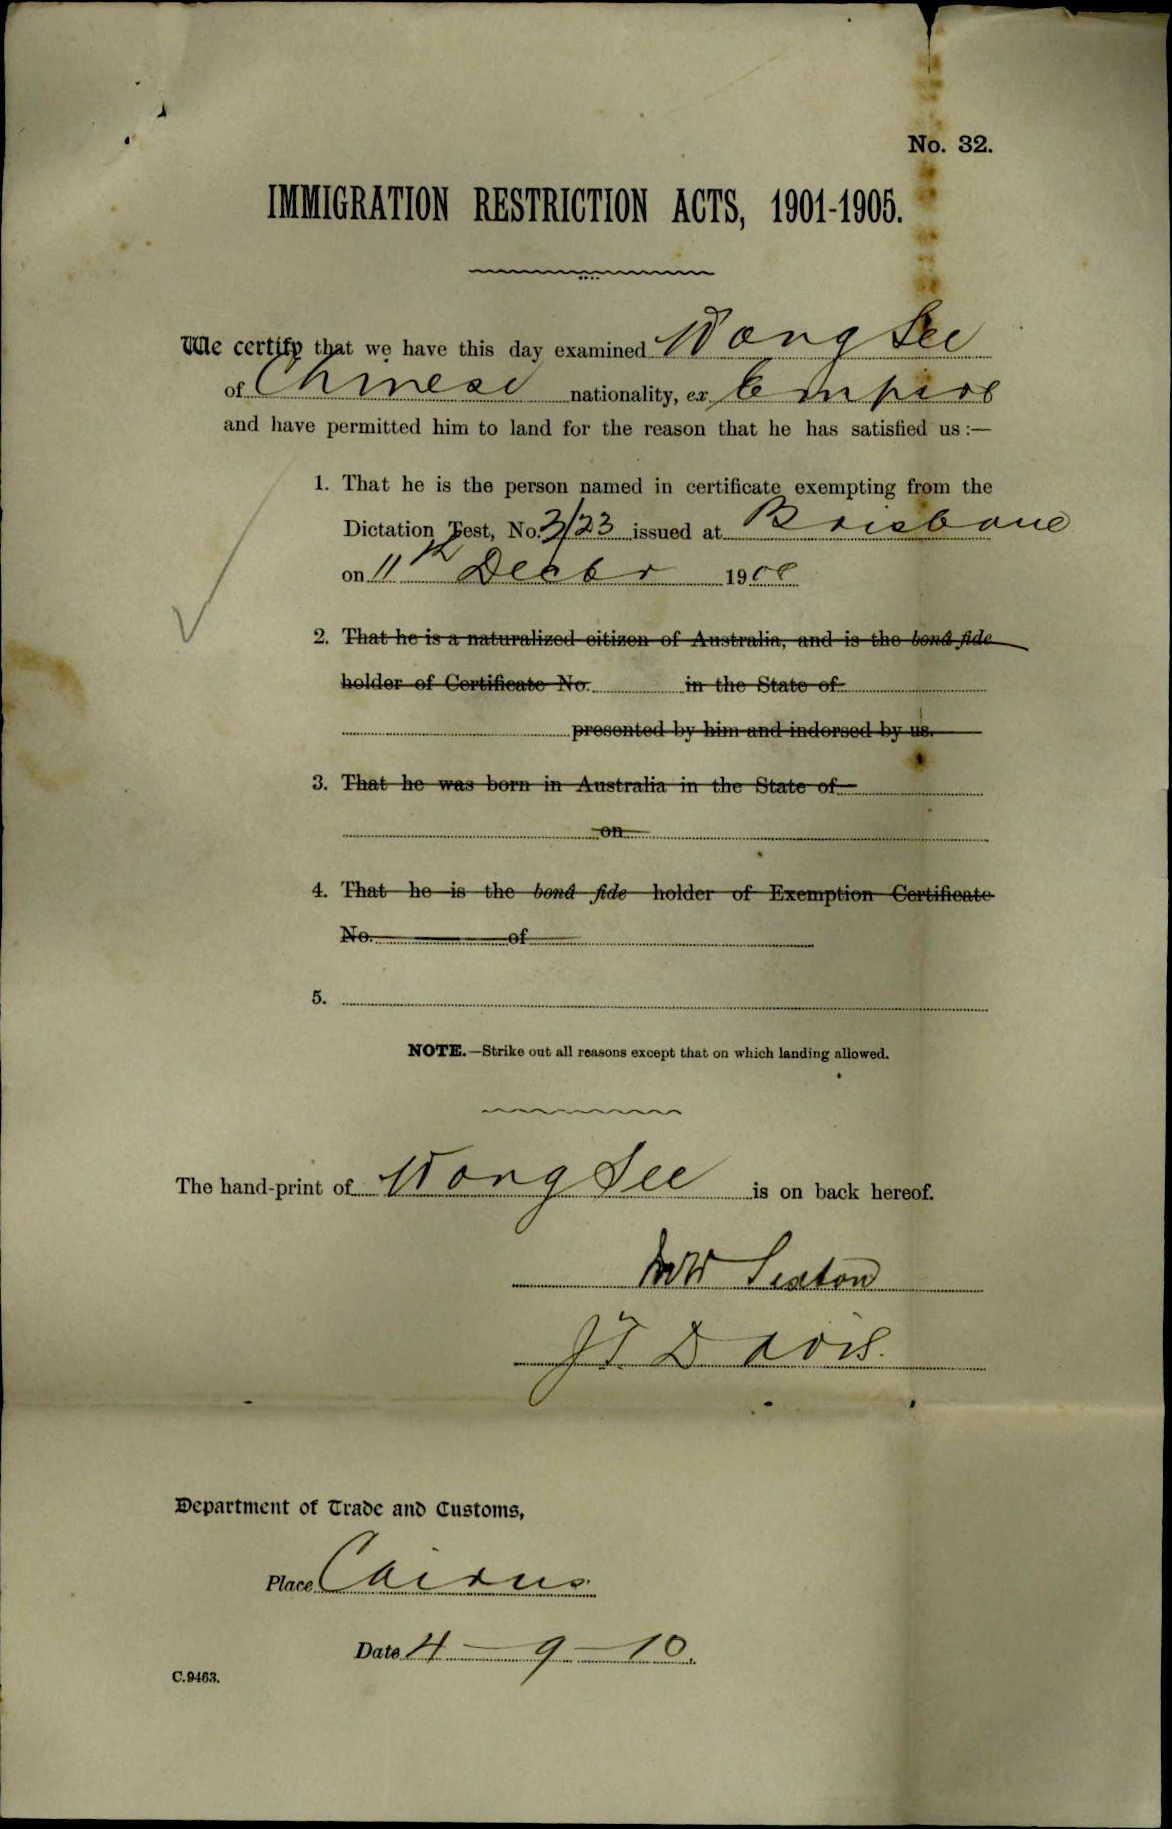 No. 32.
IMMIGRATION RESTRICTION ACTS, 1901-1905.
We certify that we have this day examined Wong See
of Chinese nationality, ex Empire
and have permitted him to land for the reason that he has satisfied us :—
1. That he is the person named in certificate exempting from the
Dictation Test, No. 3/23 issued at Brisbane
on 11th Decbr 1908
2. That he is a naturalized citizen of Australia, and is the bonâ fide
holder of Certificate No. in the State of
presented by him and indorsed by us.
3. That he was born in Australia in the State of
on
4. That he is the bonâ fide holder of Exemption Certificate
No. of
5.
NOTE.—Strike out all reasons except that on which landing allowed.
The hand-print of Wong See is on back hereof.
Sexton
JT Davis.
Department of Trade and Customs,
Place Cairns
Date 4-9-10.
C.9463.